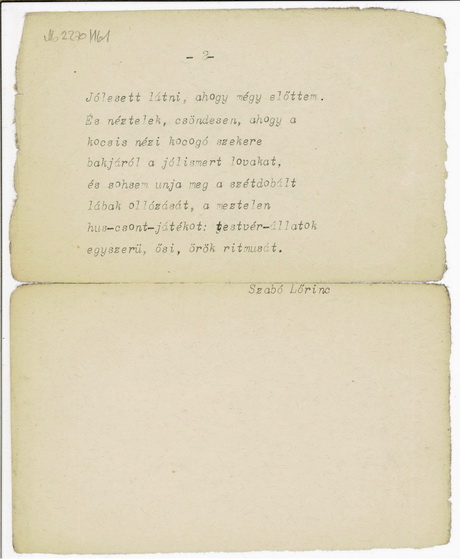 - 2-
Jólesett látni, ahogy mégy előttem.
És néztelek, csöndesen, ahogy a
kocsis nézi kocogó szekere
bakjáról a jólismert lovakat,
és sohsem unja meg a szétdobált
lábak ollózását, a meztelen
hus-csont-játékot: testvér-állatok
egyszerü, ősi, örök ritmusát.
Szabó Lőrinc